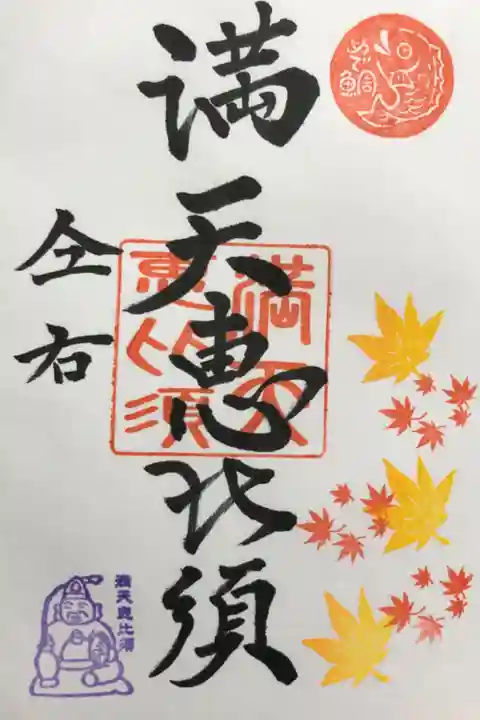 めで鯛
満天恵比須
仝右
満天
恵比須
満天恵比須